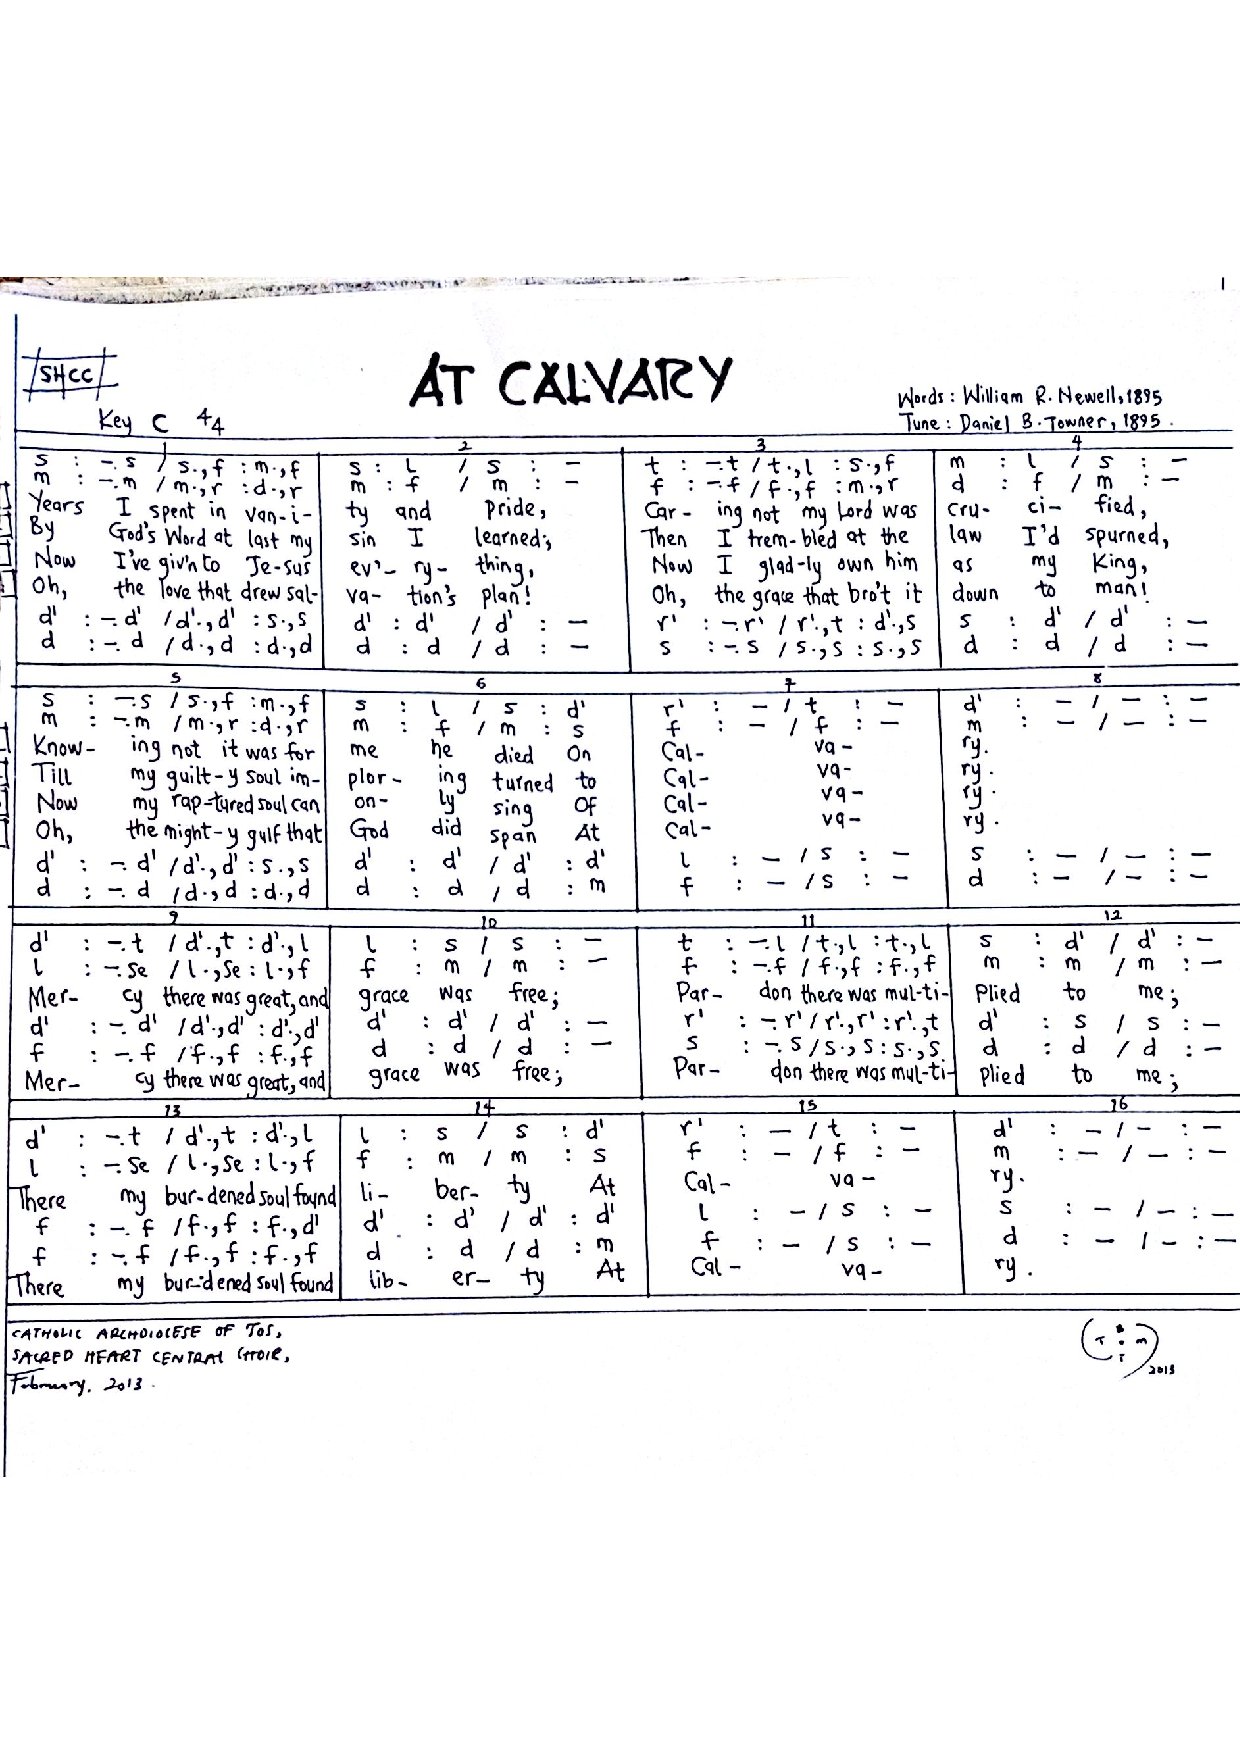 SHCC
AT CALVARY
Key C 4/4
Words: William R. Newell, 1895
Tune: Daniel B. Towner, 1895.
1 2 3 4
s : -.s / s.,f : m.,f | s : l / s : - | t : -.t / t.,l : s.,f | m : l / s : -
m : -.m / m.,r : d.,r | m : f / m : - | f : -.f / f.,f : m.,r | d : f / m : -
Years I spent in van-i- ty and pride, Car- ing not my Lord was cru- ci- fied,
By God's Word at last my sin I learned; Then I trem-bled at the law I'd spurned,
Now I've giv'n to Je-sus ev'- ry- thing, Now I glad-ly own him as my King,
Oh, the love that drew sal- va- tion's plan! Oh, the grace that bro't it down to man!
d' : -.d' / d'.,d' : s.,s | d' : d' / d' : - | r' : -.r' / r'.,t : d'.,s | s : d' / d' : -
d : -.d / d.,d : d.,d | d : d / d : - | s : -.s / s.,s : s.,s | d : d / d : -
5 6 7 8
s : -.s / s.,f : m.,f | s : l / s : d' | r' : - / t : - | d' : - / - : -
m : -.m / m.,r : d.,r | m : f / m : s | f : - / f : - | m : - / - : -
Know- ing not it was for me he died On Cal- va- ry.
Till my guilt-y soul im- plor- ing turned to Cal- va- ry.
Now my rap-tured soul can on- ly sing Of Cal- va- ry.
Oh, the might-y gulf that God did span At Cal- va- ry.
d' : -.d' / d'.,d' : s.,s | d' : d' / d' : d' | l : - / s : - | s : - / - : -
d : -.d / d.,d : d.,d | d : d / d : m | f : - / s : - | d : - / - : -
9 10 11 12
d' : -.t / d'.,t : d'.,l | l : s / s : - | t : -.l / t.,l : t.,l | s : d' / d' : -
l : -.se / l.,se : l.,f | f : m / m : - | f : -.f / f.,f : f.,f | m : m / m : -
Mer- cy there was great, and grace was free; Par- don there was mul-ti- plied to me;
d' : -.d' / d'.,d' : d'.,d' | d' : d' / d' : - | r' : -.r' / r'.,r' : r'.,t | d' : s / s : -
f : -.f / f.,f : f.,f | d : d / d : - | s : -.s / s.,s : s.,s | d : d / d : -
Mer- cy there was great, and grace was free; Par- don there was mul-ti- plied to me;
13 14 15 16
d' : -.t / d'.,t : d'.,l | l : s / s : d' | r' : - / t : - | d' : - / - : -
l : -.se / l.,se : l.,f | f : m / m : s | f : - / f : - | m : - / - : -
There my bur-dened soul found li- ber- ty At Cal- va- ry.
f : -.f / f.,f : f.,d' | d' : d' / d' : d' | l : - / s : - | s : - / - : -
f : -.f / f.,f : f.,f | d : d / d : m | f : - / s : - | d : - / - : -
There my bur-dened soul found lib- er- ty At Cal- va- ry.
CATHOLIC ARCHDIOCESE OF JOS,
SACRED HEART CENTRAL CHOIR,
February, 2013.
2013